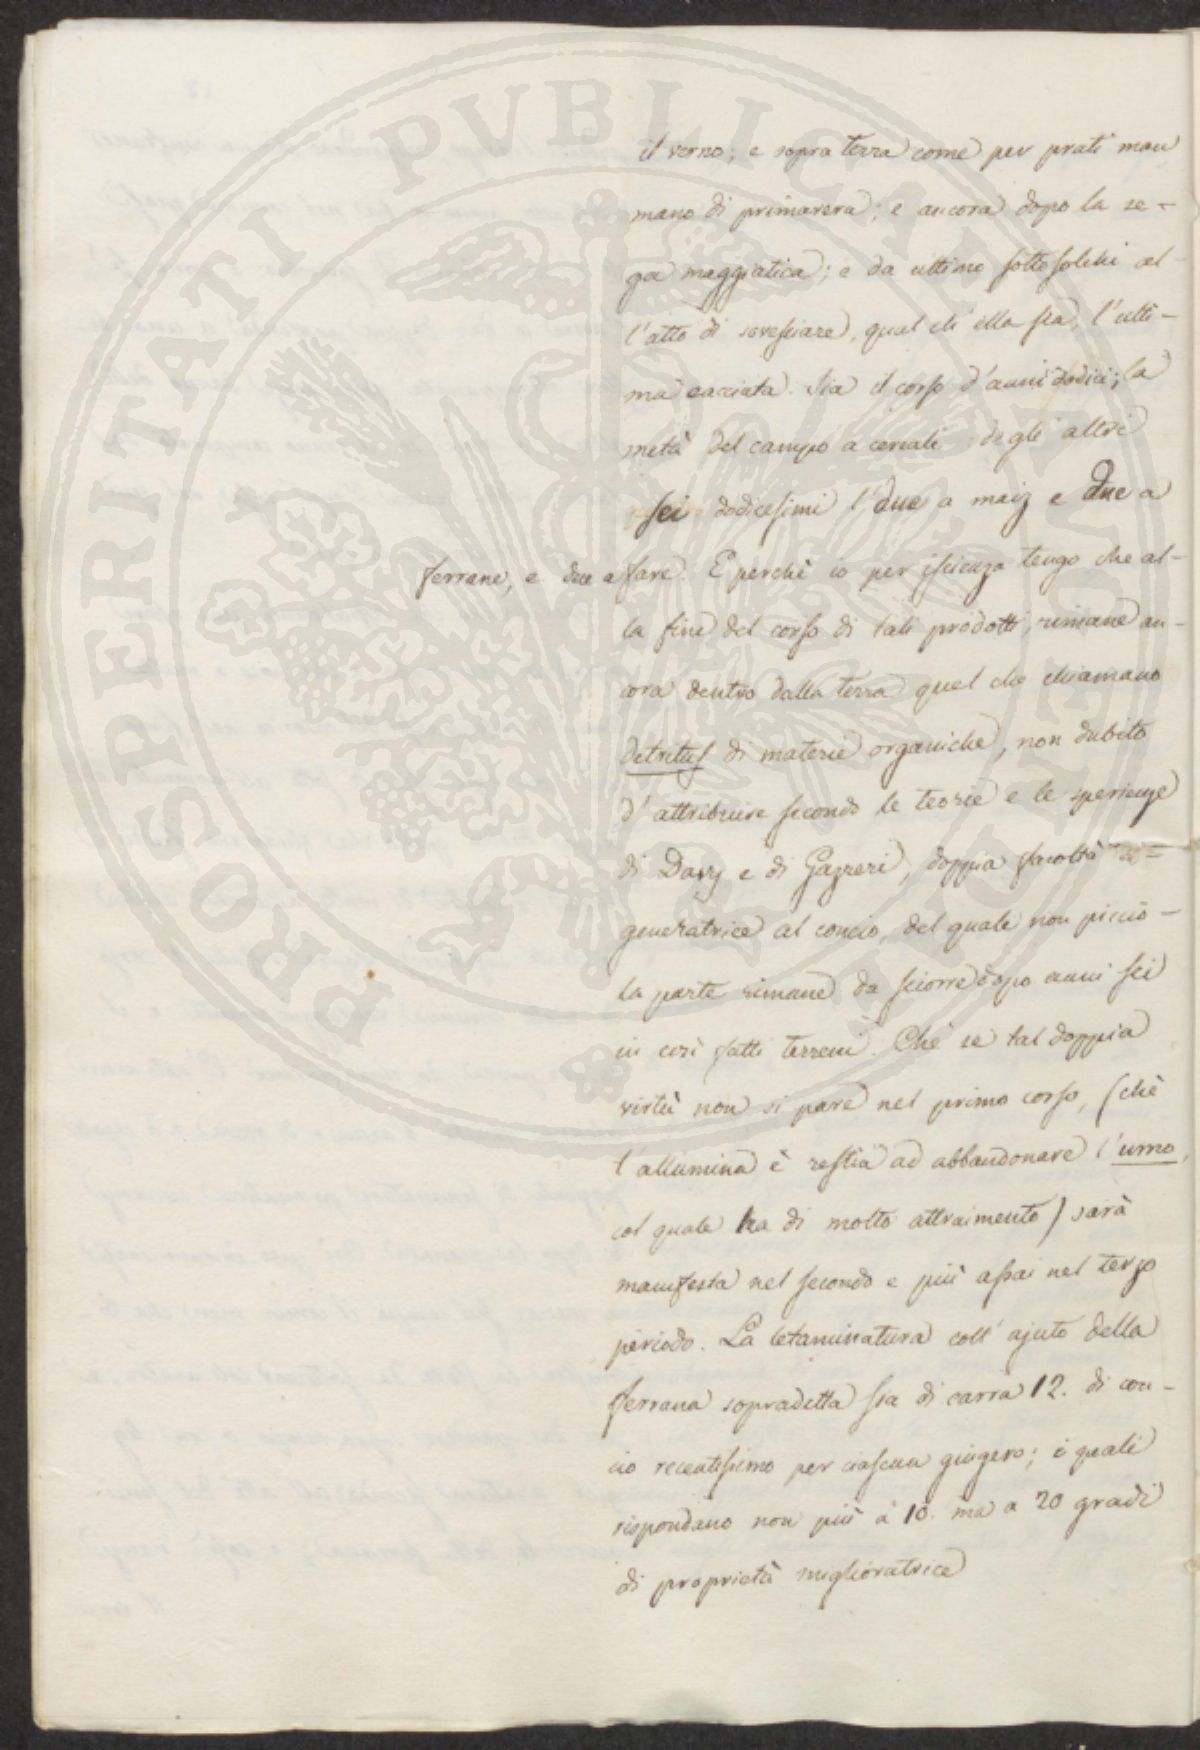 PROSPERITATI PUBLICAE AUGENDAE
il verno; e sopra terra come per prati man
mano di primavera; e ancora dopo la se-
ga maggiatica; e da ultimo sottosolchi al-
l'atto di sovesciare, qual ch'ella sia, l'ulti-
ma cacciata. Sia il corso d'anni dodici; la
metà del campo a cereali: degli altri
sei dodicesimi l'due a maiz e due a
ferrane, e due a fave. E perchè io per iscienza tengo che al-
la fine del corso di tali prodotti, rimane an-
cora dentro dalla terra quel che chiamano
detritus di materie organiche, non dubito
d'attribuire secondo le teorie e le sperienze
di Davy e di Gazzeri, doppia facoltà
generatrice al concio, del quale non piccio-
la parte rimane da sciorre dopo anni sei
in così fatti terreni. Chè se tal doppia
virtù non si pare nel primo corso, (chè
l'allumina è restia ad abbandonare l'umo,
col quale ha di molto attraimento) sarà
manifesta nel secondo e più assai nel terzo
periodo. La letaminatura coll'ajuto della
ferrana sopradetta sia di carra 12. di con-
cio recentissimo per ciascun giugero; i quali
rispondano non più a 10. ma a 20 gradi
di proprietà miglioratrice